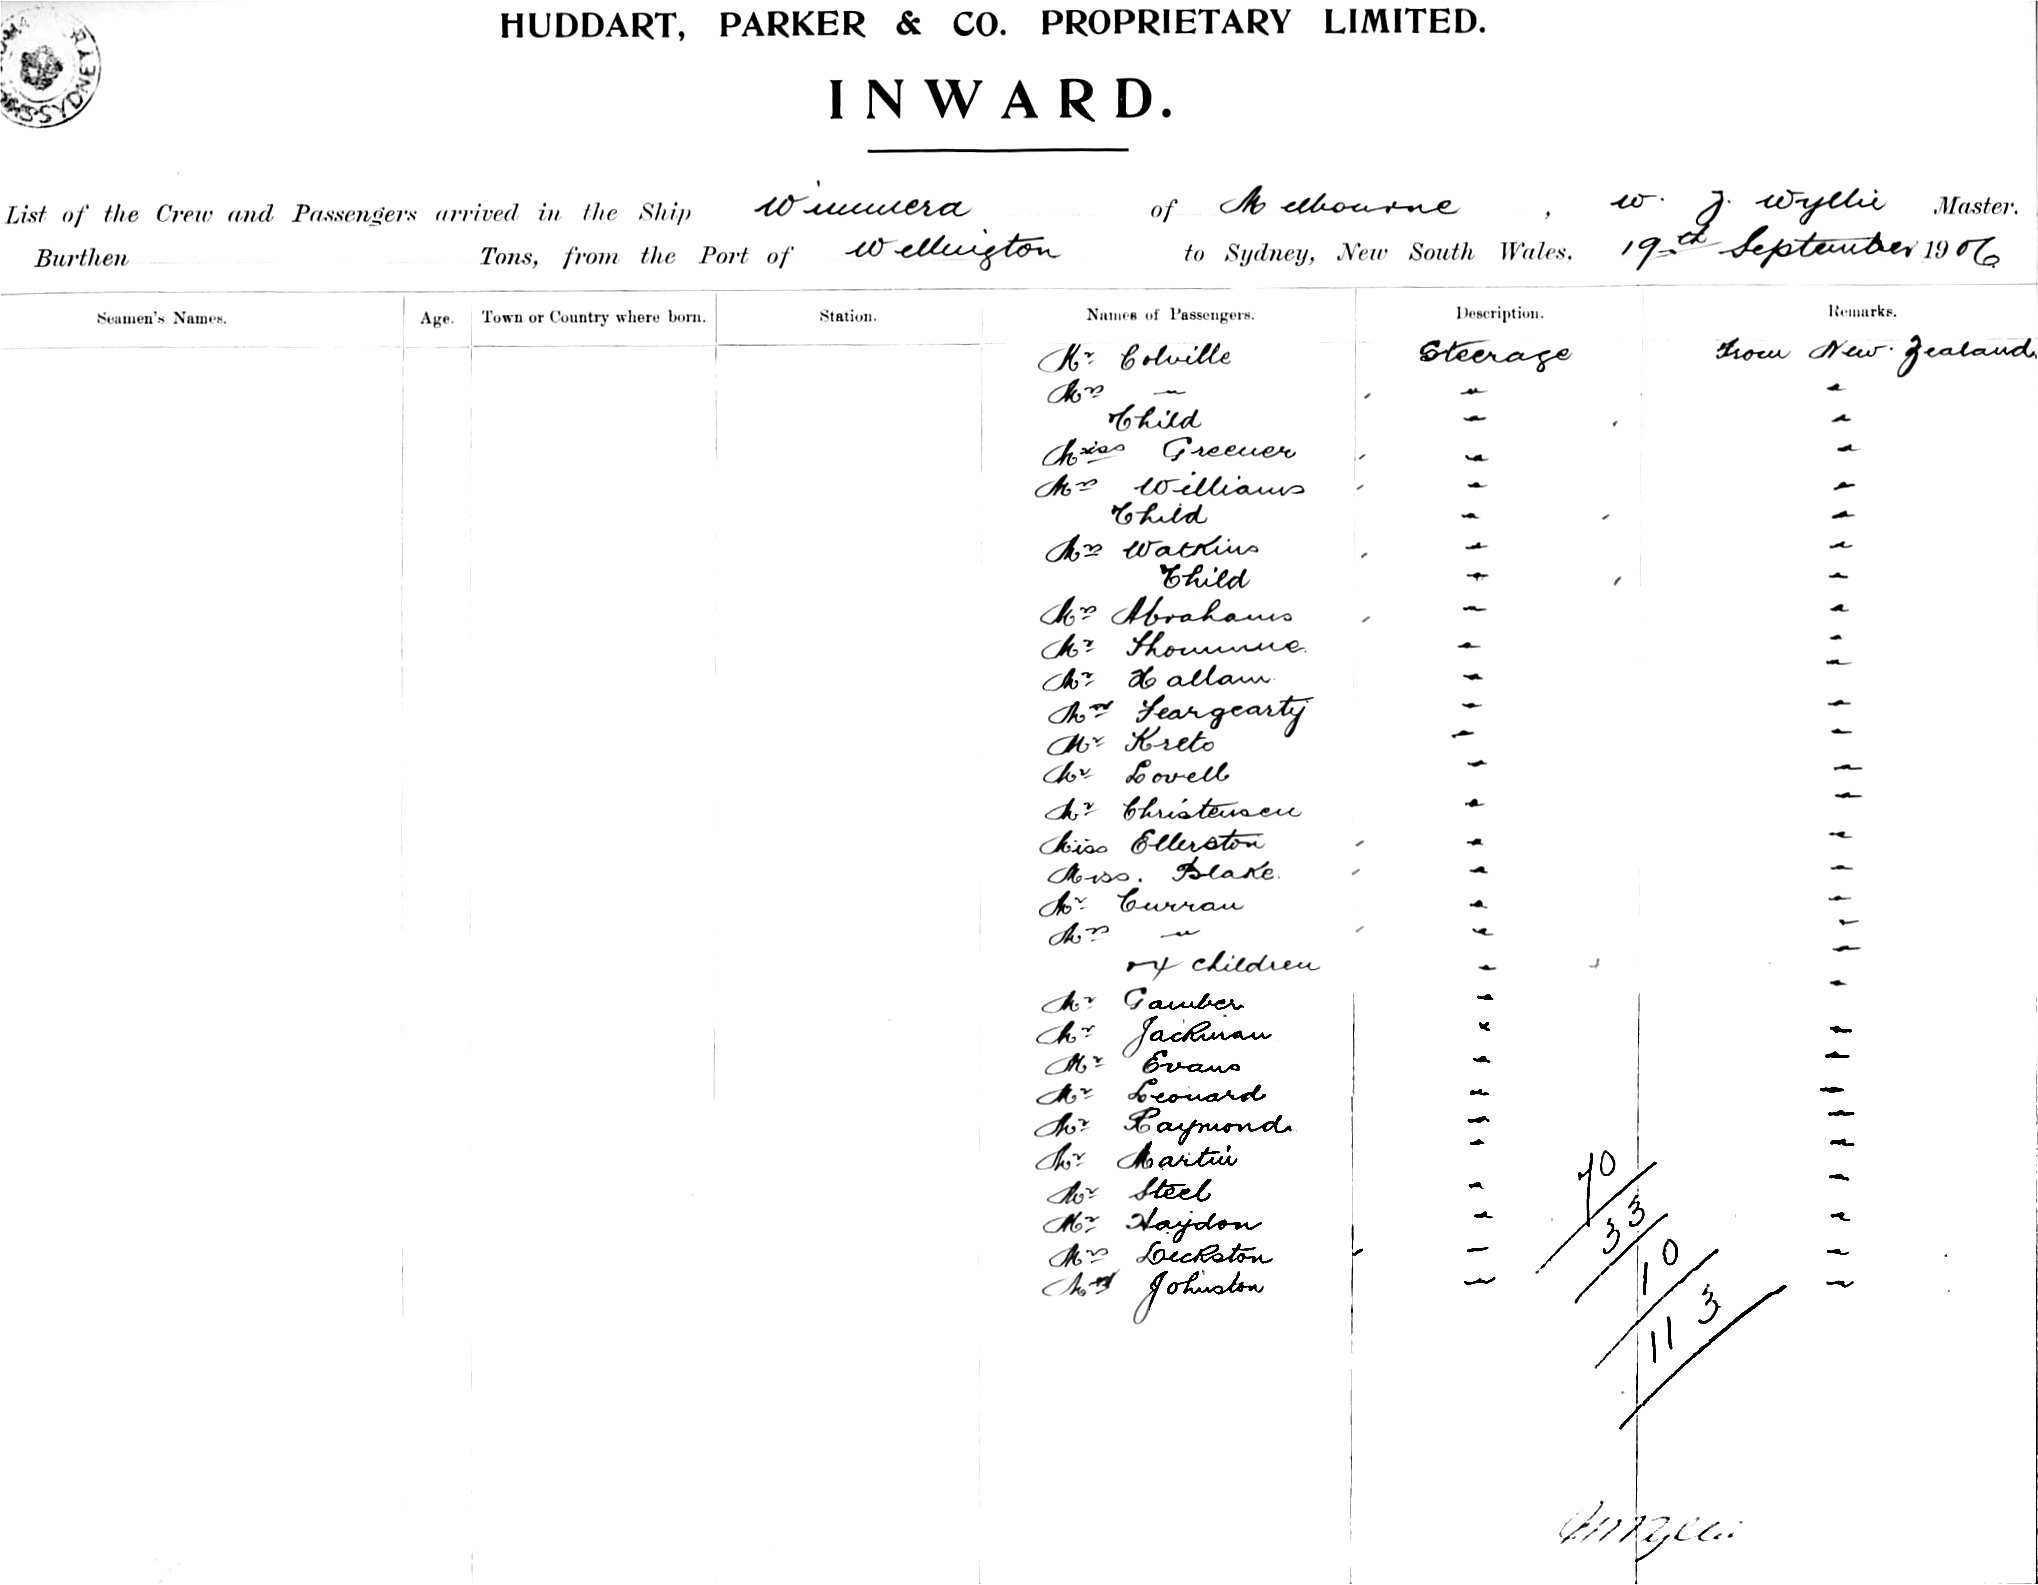 HUDDART, PARKER & CO. PROPRIETARY LIMITED.
INWARD.
SYDNEY
List of the Crew and Passengers arrived in the Ship Wimmera of Melbourne, W. J. Wyllie Master.
Burthen Tons, from the Port of Wellington to Sydney, New South Wales, 19th September 1906
Seamen's Names. Age. Town or Country where born. Station. Names of Passengers. Description. Remarks.
Mr Colville Steerage From New Zealand
Mrs " " "
Child " "
Miss Greener " "
Mrs Williams " "
Child " "
Mrs Watkins " "
Child " "
Mrs Abrahams " "
Mr " "
Mr Hallam " "
Feargearty " "
Mr Kreto " "
Mr Lovell " "
Mr Christensen " "
Miss Ellerston " "
Miss. Blake " "
Mr Curran " "
Mrs " " "
children " "
Mr Gamber " "
Mr Jackman " "
Mr Evans " "
Mr Leonard " "
Mr Raymond " "
Mr Martin " "
Mr Steel " "
Mr Haydon " "
Mrs " "
Johnston " "
70
33
10
113